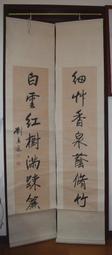 細艸香泉蔭脩竹
白雲紅樹滿疎簾